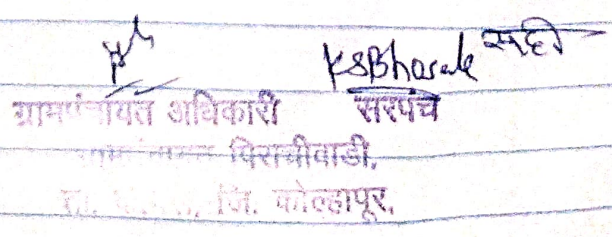 KSBharale सही
ग्रामपंचायत अधिकारी सरपंच
पिराचीवाडी,
जि. कोल्हापूर.